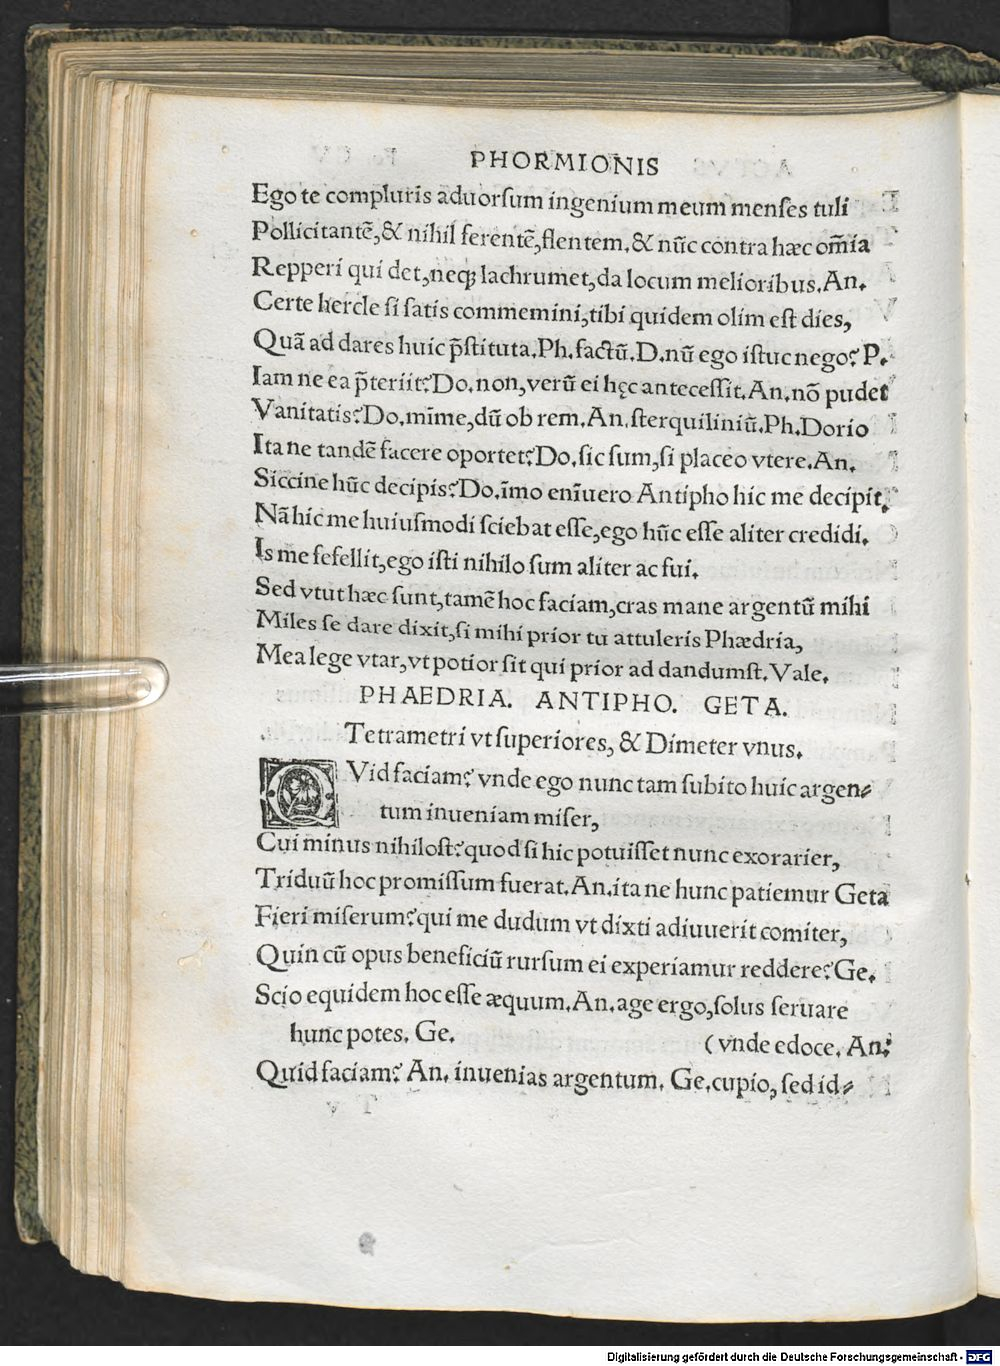 PHORMIONIS
Ego te compluris aduorſum ingenium meum menſes tuli
Pollicitantē,& nihil ferentē,flentem.& nūc contra hæc om̄ia
Repperi qui det,neqꝫ lachrumet,da locum melioribus.An.
Certe hercle ſi ſatis commemini,tibi quidem olim eſt dies,
Quā ad dares huic p̄ſtituta.Ph.factū.D.nū ego iſtuc nego? P.
Iam ne ea p̄teriit?Do.non,verū ei hęc anteceſſit.An.nō pudet
Vanitatis?Do.mīme,dū ob rem.An.ſterquiliniū.Ph.Dorio
Ita ne tandē facere oportet?Do.ſic ſum,ſi placeo vtere.An.
Siccine hūc decipis?Do.īmo enīuero Antipho hic me decipit.
Nā hic me huiuſmodi ſciebat eſſe,ego hūc eſſe aliter credidi.
Is me fefellit,ego iſti nihilo ſum aliter ac fui.
Sed vtut hæc ſunt,tamē hoc faciam,cras mane argentū mihi
Miles ſe dare dixit,ſi mihi prior tu attuleris Phædria,
Mea lege vtar,vt potior ſit qui prior ad dandumſt.Vale.
PHAEDRIA. ANTIPHO. GETA.
Tetrametri vt ſuperiores, & Dimeter vnus.
QVid faciam? vnde ego nunc tam ſubito huic argen⸗
tum inueniam miſer,
Cui minus nihiloſt?quod ſi hic potuiſſet nunc exorarier,
Triduū hoc promiſſum fuerat.An.ita ne hunc patiemur Geta
Fieri miſerum?qui me dudum vt dixti adiuuerit comiter,
Quin cū opus beneficiū rurſum ei experiamur reddere?Ge.
Scio equidem hoc eſſe æquum.An.age ergo,ſolus ſeruare
hunc potes. Ge. (vnde edoce. An.
Quid faciam? An. inuenias argentum. Ge.cupio, ſed id⸗
Digitalisierung gefördert durch die Deutsche Forschungsgemeinschaft - DFG